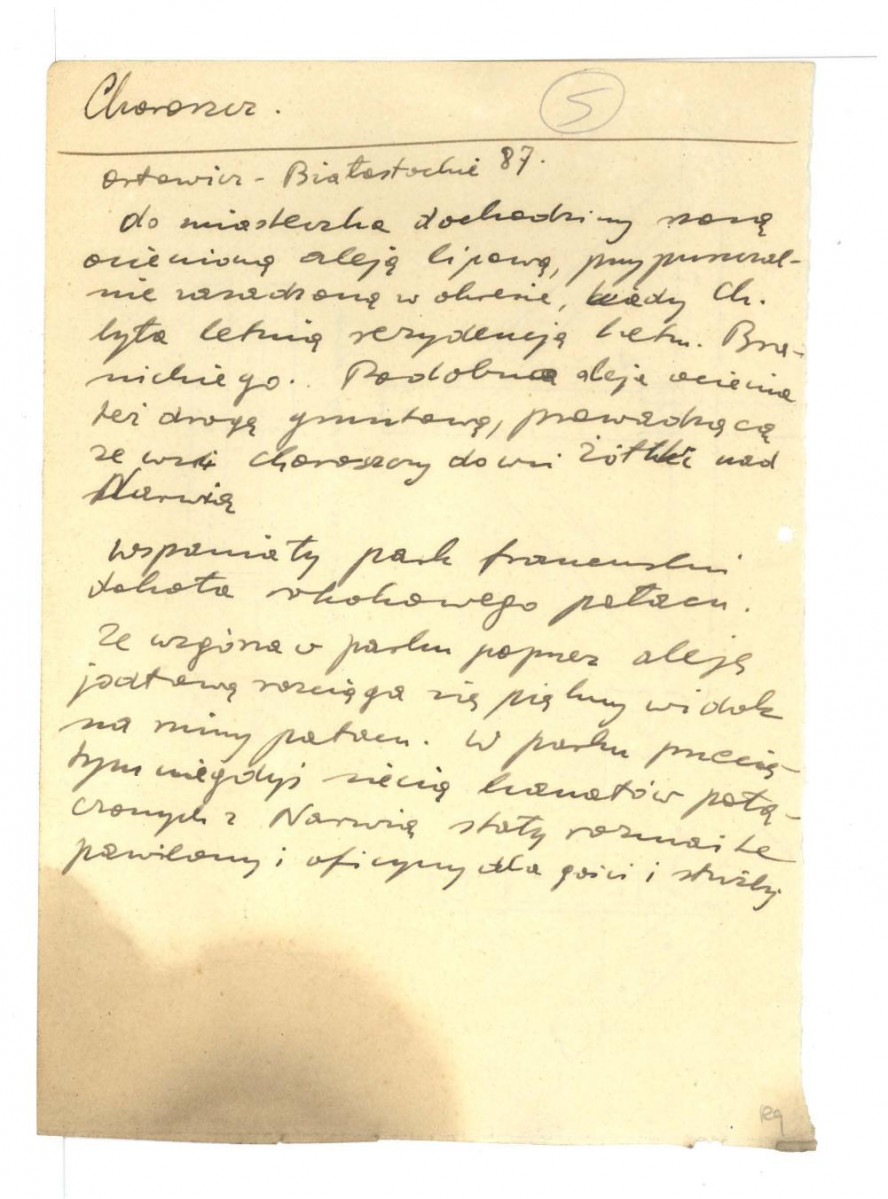 Choroszcz.
5
Orłowicz - Białostockie 87.
do miasteczka dochodzimy szosą
ocienioną aleją lipową, przypuszczal-
nie zasadzoną w okresie, kiedy Ch.
była letnią rezydencją hetm. Bra-
nickiego. Podobna aleja ocienia
też drogę gruntową, prowadzącą
ze wsi Choroszczy do wsi Żółtki nad
Narwią
Wspaniały park francuski
dokoła rokokowego pałacu.
Ze wzgórza w parku poprzez aleję
jodłową rozciąga się piękny widok
na ruiny pałacu. W parku przecię-
tym niegdyś siecią kanałów połą-
czonych z Narwią stały rozmaite
pawilony i oficyny dla gości i służby